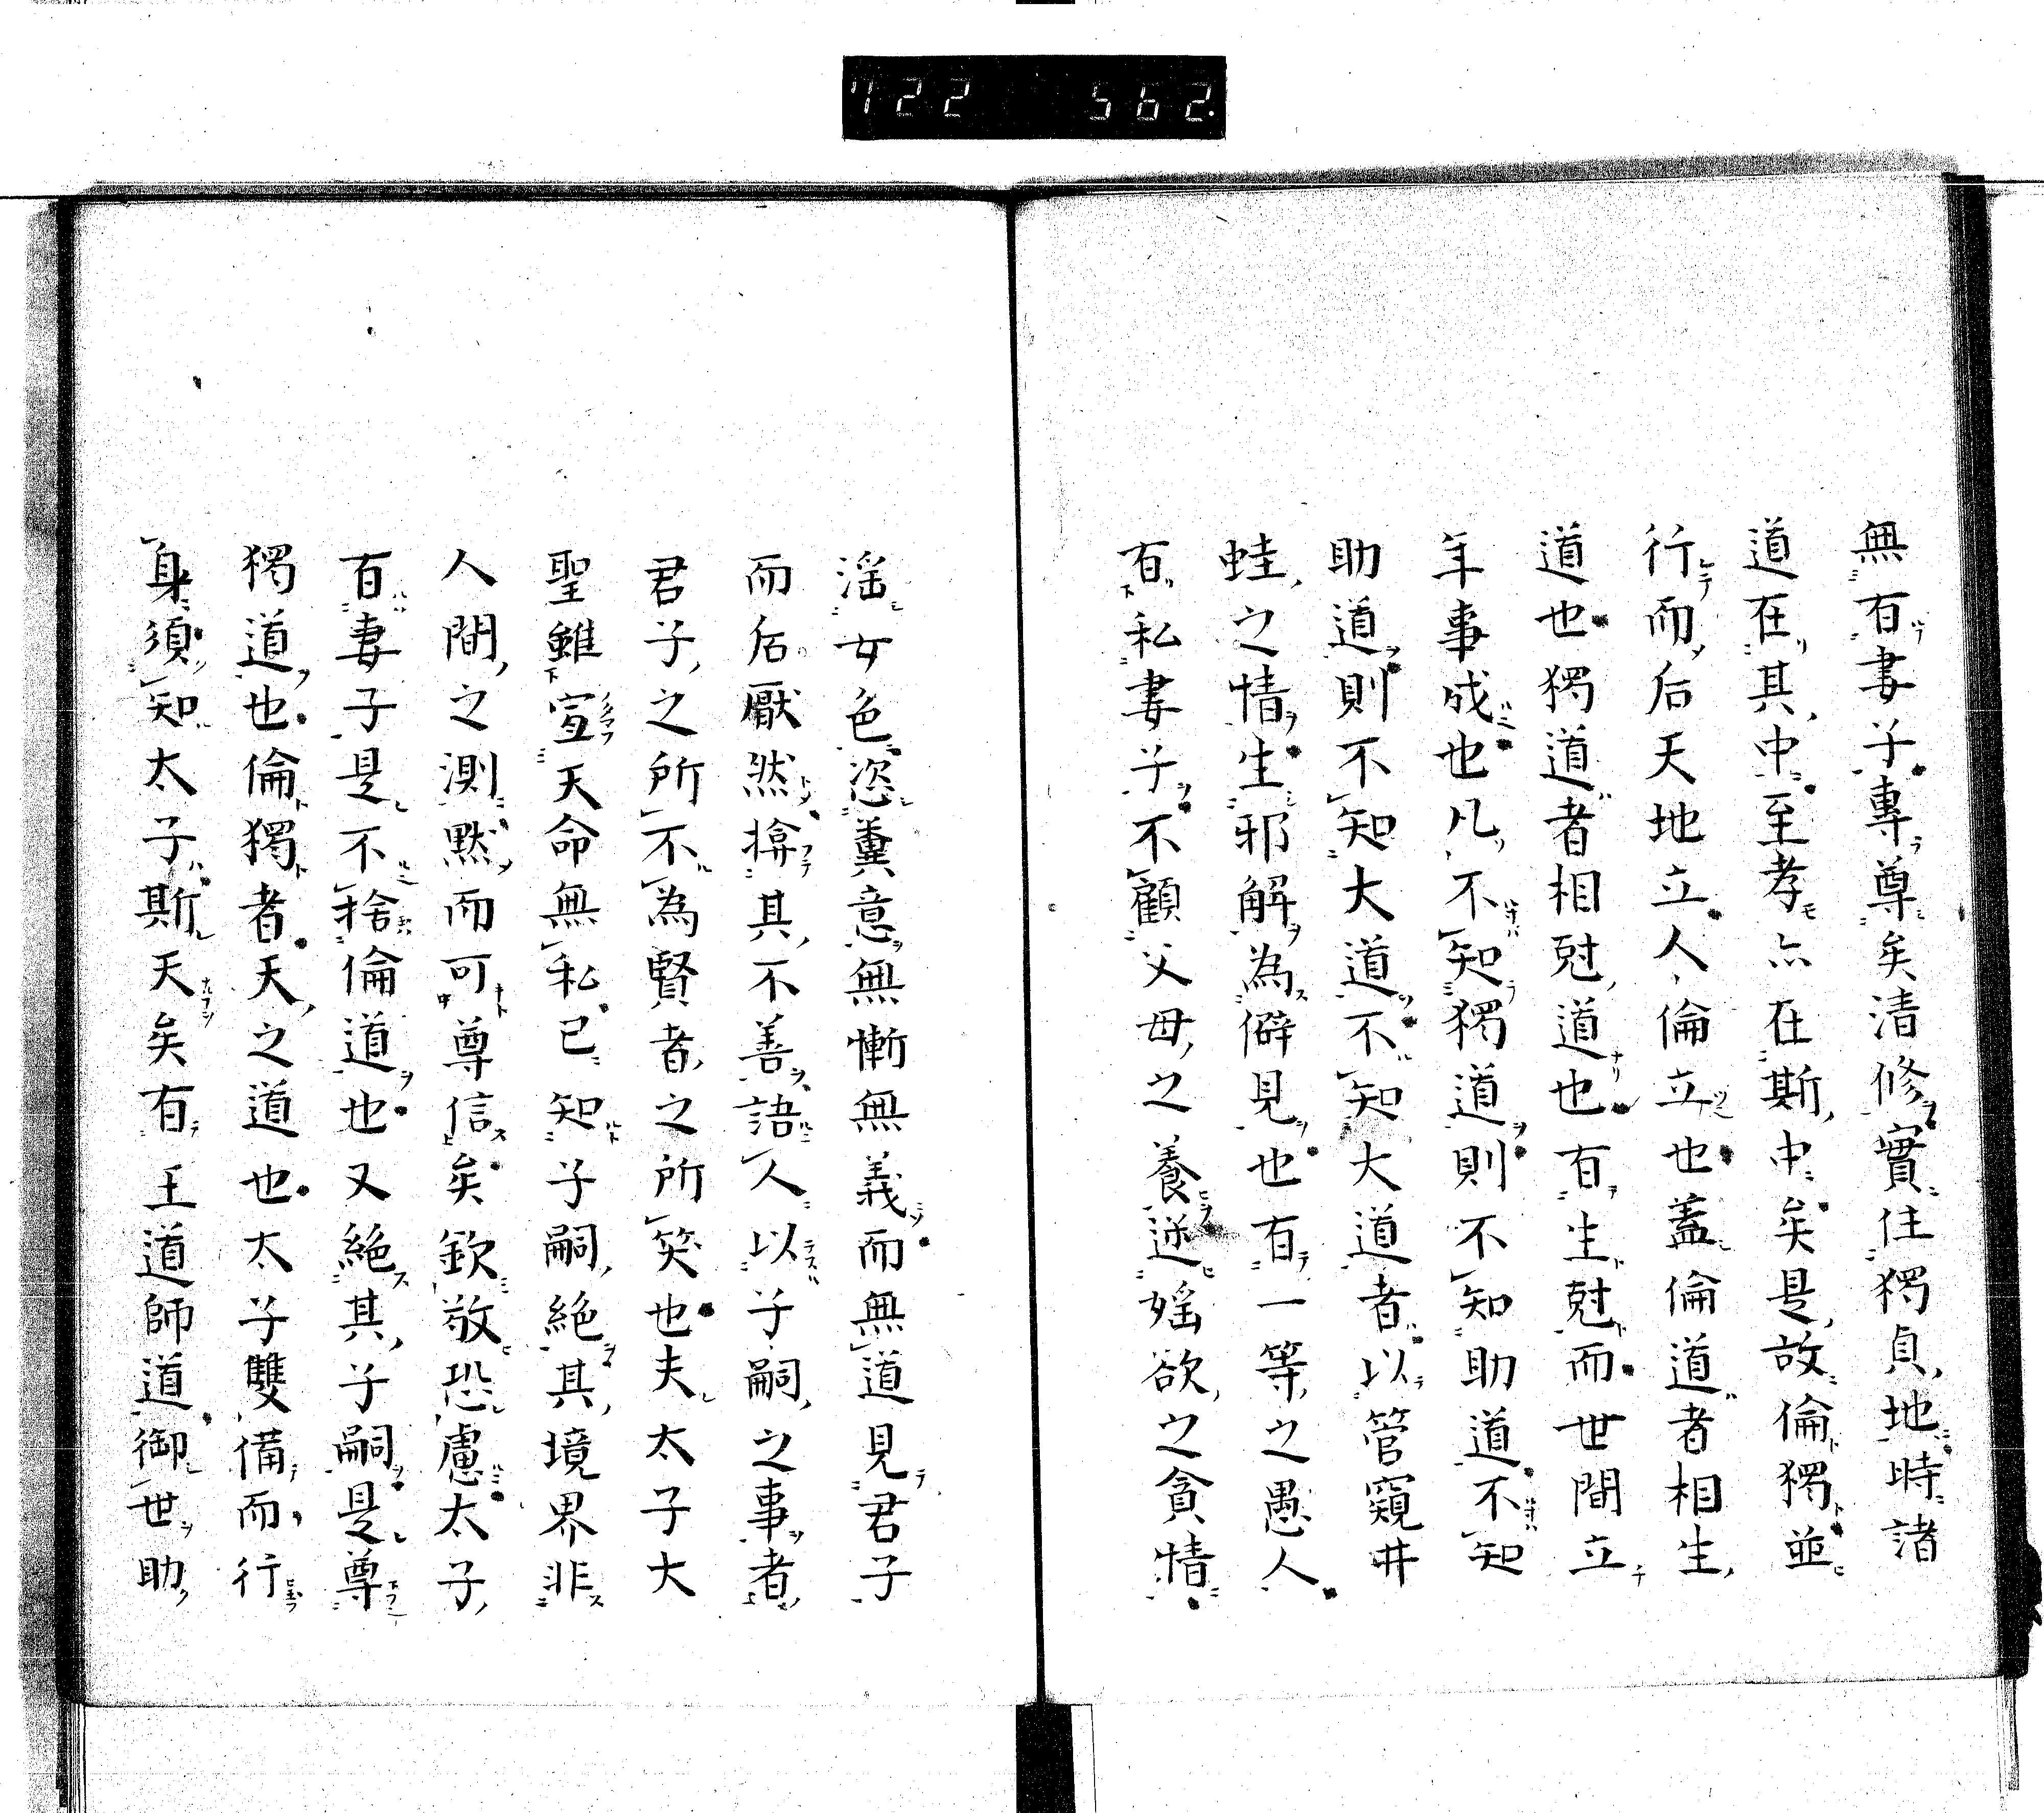 722 562.
無有妻子專尊矣清修實住獨貞地時諸
道在其中至孝亦在斯中矣是故倫獨並
行而后天地立人倫立也蓋倫道者相生
道也獨道者相尅道也有生尅而世間立
年事成也凡不知獨道則不知助道不知
助道則不知大道不知大道者以管窺井
蛙之情生邪解為僻見也有一等之愚人
有私妻子不顧父母之養逆婬欲之貪情
淫女色恣糞意無慚無義而無道見君子
而后厭然揜其不善語人以子嗣之事者
君子之所不為賢者之所笑也夫太子大
聖雖宣天命無私已知子嗣絕其境界非
人間之測默而可尊信矣欽敬恐慮太子
有妻子是不捨倫道也又絕其子嗣是尊
獨道也倫獨者天之道也太子雙備而行
身須知太子斯天矣有王道師道御世助